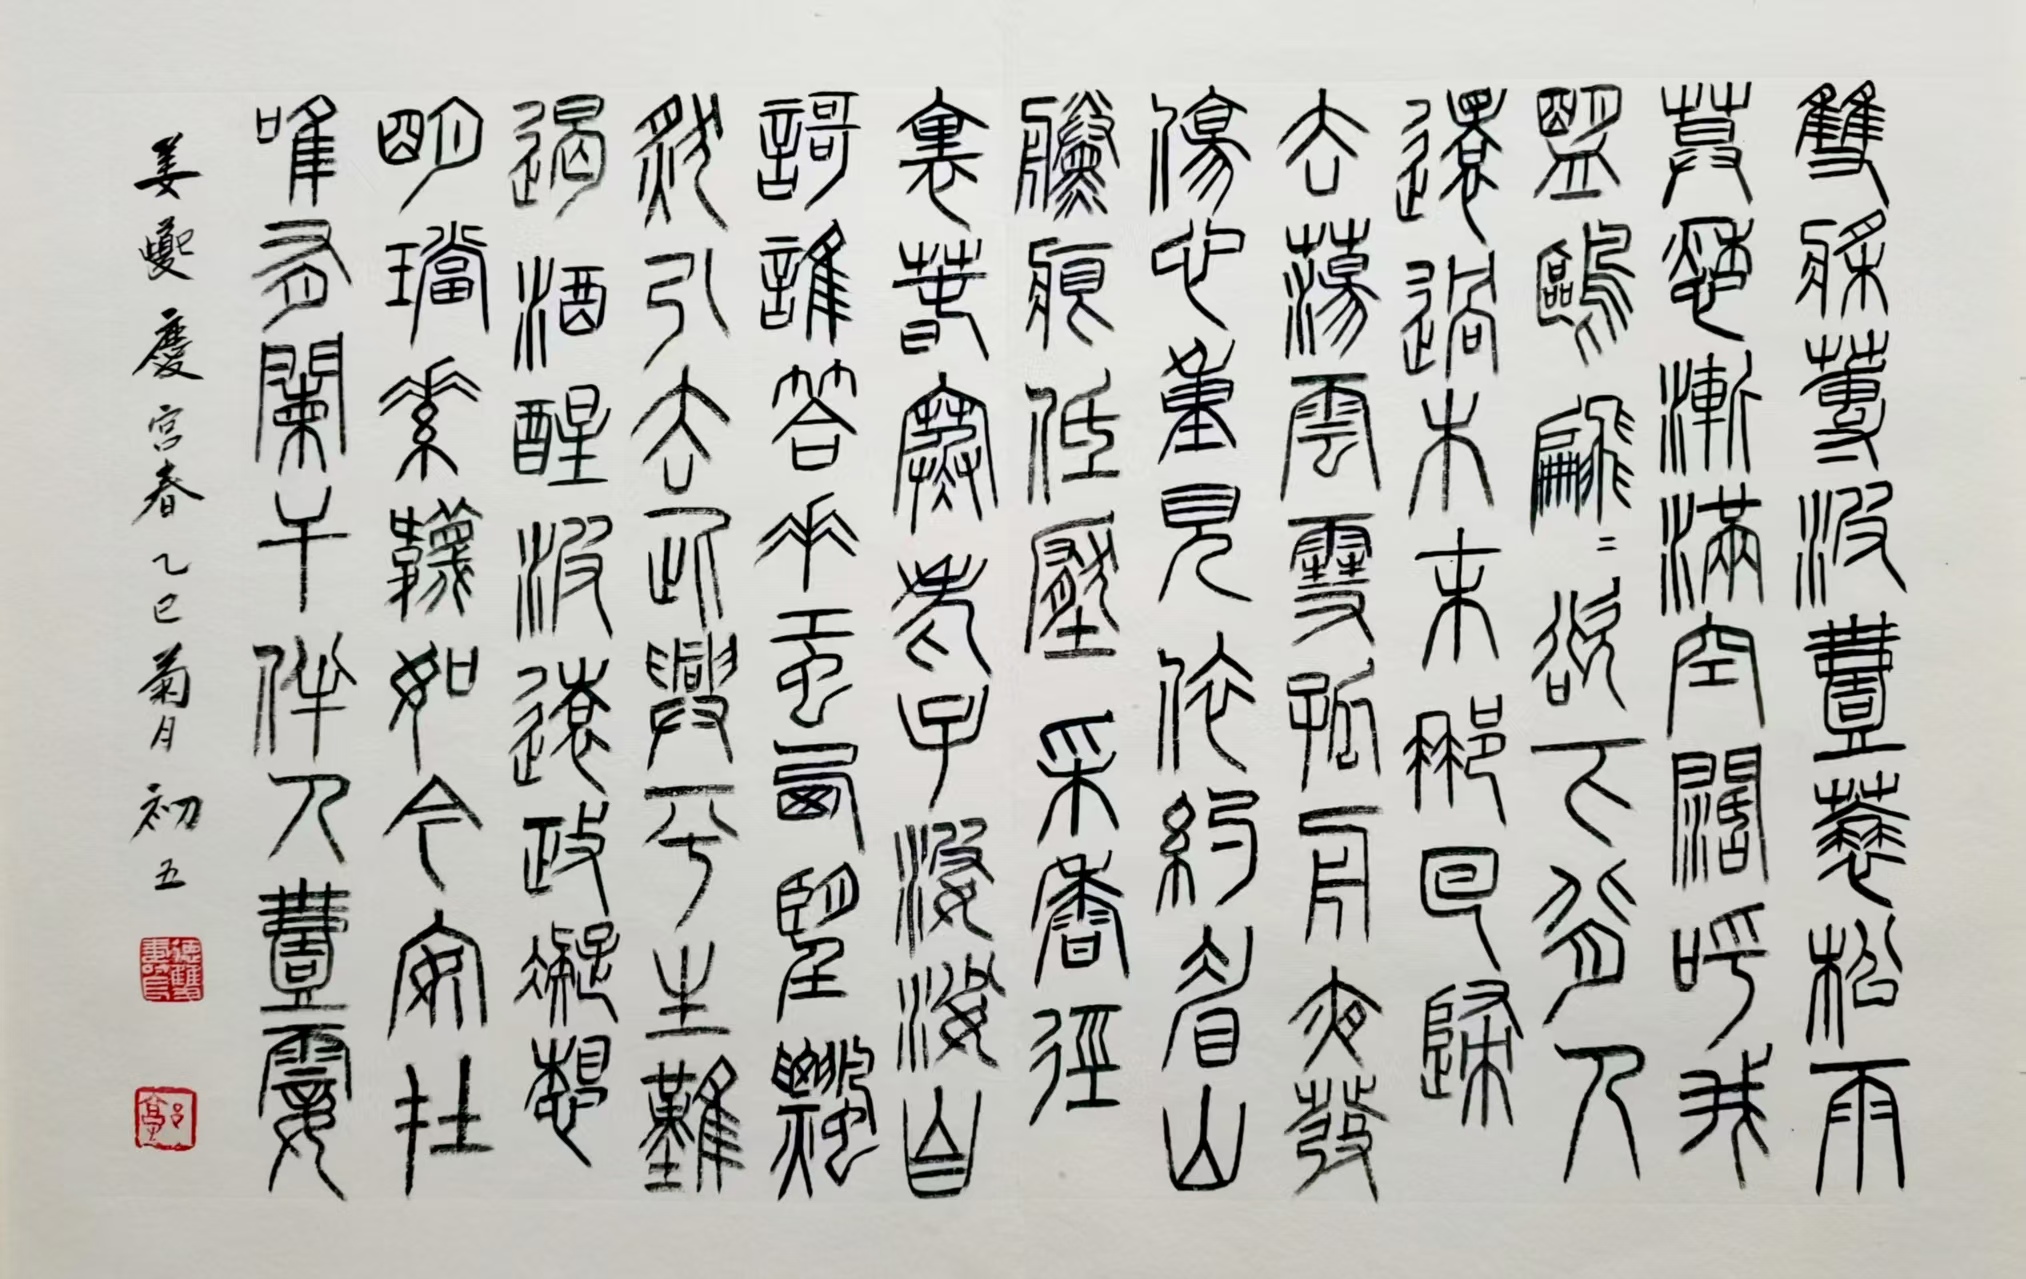 雙槳蓴波壹蓑松雨
暮愁漸滿空闊呼我
盟鷗翩〻欲下背人
還過木末那回歸
去蕩雲雪孤舟夜發
傷心重見依約眉山
黱痕低壓采香徑
裏春寒老子婆娑自
謌誰答垂虹西望飄
然引去此興平生難
遏酒醒波遠政凝想
明璫素韈如今安在
唯有闌干伴人壹霎
姜夔慶宮春乙巳菊月初五